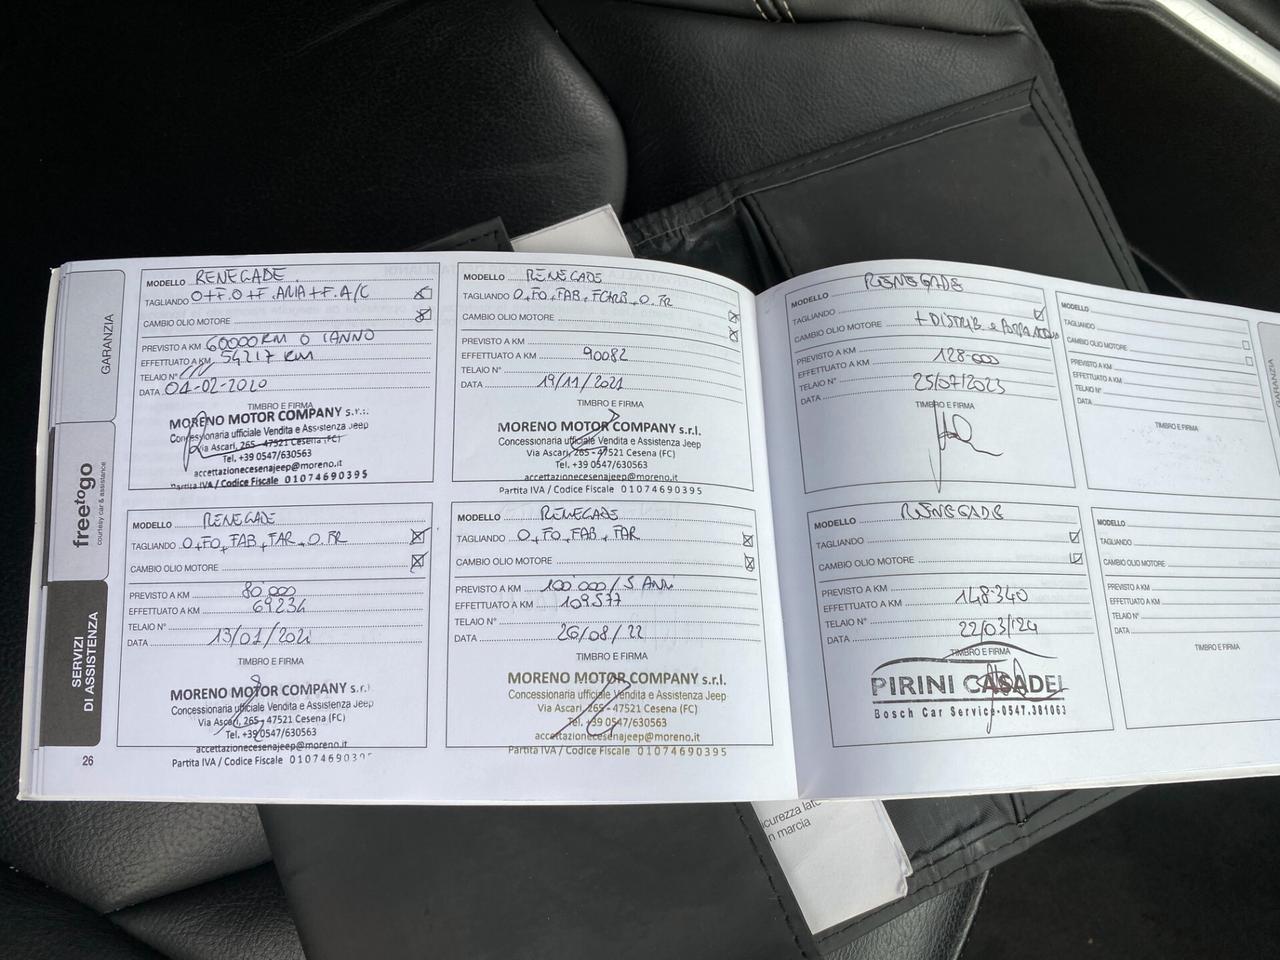 GARANZIA
freetogo
courtesy car & assistance
SERVIZI
DI ASSISTENZA
26
MODELLO RENEGADE
TAGLIANDO O+F.O+F.ARIA+F.A/C
CAMBIO OLIO MOTORE
PREVISTO A KM 60000KM O 1ANNO
EFFETTUATO A KM 54217 KM
TELAIO N° ///
DATA 04-02-2020
TIMBRO E FIRMA
MORENO MOTOR COMPANY s.r.l.
Concessionaria ufficiale Vendita e Assistenza Jeep
Via Ascari, 265 - 47521 Cesena (FC)
Tel. +39 0547/630563
accettazionecesenajeep@moreno.it
Partita IVA / Codice Fiscale 01074690395
MODELLO RENEGADE
TAGLIANDO O+FO+FAB+FAR+O.FR
CAMBIO OLIO MOTORE
PREVISTO A KM 80.000
EFFETTUATO A KM 69234
TELAIO N°
DATA 13/01/2021
TIMBRO E FIRMA
MORENO MOTOR COMPANY s.r.l
Concessionaria ufficiale Vendita e Assistenza Jeep
Via Ascari, 265 - 47521 Cesena (FC)
Tel. +39 0547/630563
accettazionecesenajeep@moreno.it
Partita IVA / Codice Fiscale 01074690395
MODELLO RENEGADE
TAGLIANDO O+FO+FAB+FCARB+O.FR
CAMBIO OLIO MOTORE
PREVISTO A KM
EFFETTUATO A KM 90082
TELAIO N°
DATA 19/11/2021
TIMBRO E FIRMA
MORENO MOTOR COMPANY s.r.l.
Concessionaria ufficiale Vendita e Assistenza Jeep
Via Ascari, 265 - 47521 Cesena (FC)
Tel. +39 0547/630563
accettazionecesenajeep@moreno.it
Partita IVA / Codice Fiscale 01074690395
MODELLO RENEGADE
TAGLIANDO O+FO+FAB+FAR
CAMBIO OLIO MOTORE
PREVISTO A KM 100.000 / 5 ANNI
EFFETTUATO A KM 109577
TELAIO N°
DATA 26/08/22
TIMBRO E FIRMA
MORENO MOTOR COMPANY s.r.l.
Concessionaria ufficiale Vendita e Assistenza Jeep
Via Ascari, 265 - 47521 Cesena (FC)
Tel. +39 0547/630563
accettazionecesenajeep@moreno.it
Partita IVA / Codice Fiscale 01074690395
MODELLO RENEGADE
TAGLIANDO
CAMBIO OLIO MOTORE + DISTRIB e POMPA ACQUA
PREVISTO A KM
EFFETTUATO A KM 128.000
TELAIO N°
DATA 25/07/2023
TIMBRO E FIRMA
MODELLO RENEGADE
TAGLIANDO
CAMBIO OLIO MOTORE
PREVISTO A KM
EFFETTUATO A KM 148.340
TELAIO N°
DATA 22/03/24
TIMBRO E FIRMA
PIRINI CASADEI
Bosch Car Service-0547.381063
MODELLO
TAGLIANDO
CAMBIO OLIO MOTORE
PREVISTO A KM
EFFETTUATO A KM
TELAIO N°
DATA
TIMBRO E FIRMA
MODELLO
TAGLIANDO
CAMBIO OLIO MOTORE
PREVISTO A KM
EFFETTUATO A KM
TELAIO N°
DATA
TIMBRO E FIRMA
GARANZIA
icurezza late
n marcia